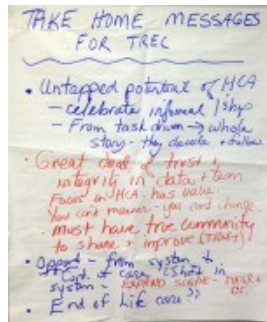 TAKE HOME MESSAGES
FOR TREC
• Untapped potential of HCA
– celebrate informal l'ship
– From task driven → whole
story – they decode + follow
• Great deal of trust +
integrity in data + team
Focus on HCA - has value.
You can't measure - you can't change.
• must have true community
to share + improve (TREC+)
• – from system to
Cont. of care (shift in
system – EXPAND SCOPE –
• End of Life care